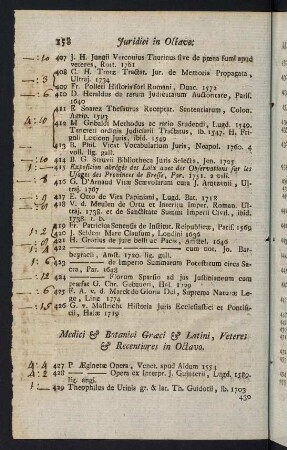 158 Juridici in Octavo.
:10 407 J. H. Jungii Vercontus Tauritus sive de poena fumi apud
veteres, Rint. 1761
408 C. H. Trotz Tractat. Jur. de Memoria Propagata,
Ultraj. 1734
409 Fr. Pollet Historia fori Romani, Duac. 1572
410 D. Heraldus de rerum Judicatarum Auctoritate, Paris.
1640
411 E Soarez Thesaurus Receptar. Sententiarum, Colon.
Agrip. 1593
412 M Gribaldi Methodus ac ratio Studendi, Lugd. 1549.
Tancreti ordinis Judiciarii Tractatus, ib. 1547. H. Fe-
rigni Lucium Jovii, ibid. 1549
413 B. Phil. Vicat Vocabularium Juris, Neapol. 1760. 4
voll. lig. gall.
414 B. G. Struvii Bibliotheca Juris Selecta, Jen. 1725
415 Exposition abregée des Loix avec des Observations sur les
Usages des Provinces de Bresse, Par. 1751. 2 voll.
416 G. D'Arnaud Vitæ Scævolarum cura J. Arntzenii, Ul-
traj. 1767
417 E. Otto de Vita Papiniani, Lugd. Bat. 1718
418 V. d. Meulen de Ortu et Interitu Imper. Roman. Ul-
traj. 1738. et de Sanctitate Summi Imperii Civil., ibid.
1738. r. b.
419 Fr. Patricius Senensis de Institut. Reipublicæ, Paris. 1569
420 J. Selden Mare Clausum, Londini 1636
421 H. Grotius de jure belli ac Pacis, Amstel. 1646
422 cum not. Jo. Bar-
beyracii, Amst. 1720. lig. gall.
423 de Imperio Summarum Potestatum circa Sa-
cra, Par. 1648
424 Florum Sparsio ad jus Justinianeum cum
præfat. G. Chr. Gebaueri, Hal. 1729
425 F. A. v. d. Marck de Gloria Dei, Suprema Naturæ Le-
ge, Ling. 1774
426 G. v. Mastricht Historia Juris Ecclesiastici et Pontifi-
cii, Halæ 1719
Medici & Botanici Græci & Latini, Veteres
& Recentiores in Octavo.
4:4 427 P. Æginetæ Opera, Venet. apud Aldum 1553
4:2 428 Opera ex Interpr. J. Guinterii, Lugd. 1589.
lig. angl.
1:2 429 Theophilus de Urinis gr. & lat. Th. Guidotii, ib. 1703
430